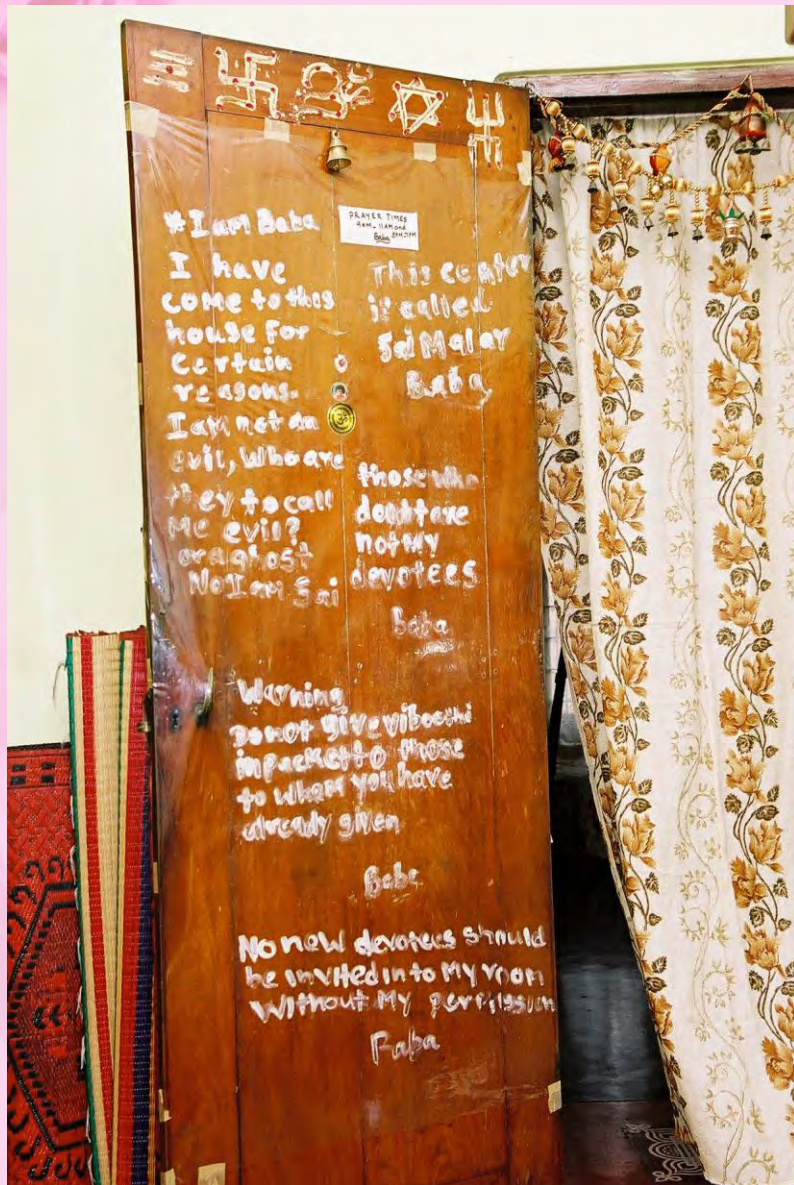 *I am Baba
I have
come to this
house for
certain
reasons.
I am not an
evil, Who are
they to call
Me evil?
or a ghost
No I am Sai
PRAYER TIMES
4am - 11AM and
Baba
This center
is called
Sai Malar
Baba
those who
doubt are
not My
devotees
Baba
Warning
Do not give viboothi
in packet to those
to whom you have
already given
Baba
No new devotees should
be invited in to My room
Without My permission
Baba
ॐ